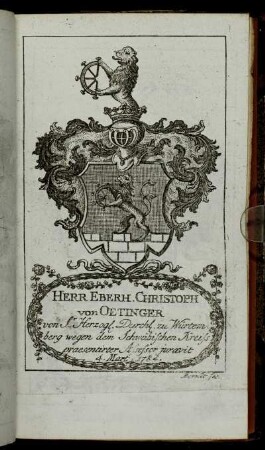 HERR EBERH. CHRISTOPH
von OETINGER
von Sr. Herzogl. Durchl. zu Würtem-
berg wegen dem Schwäbischen Kreiss
praesentirter Assessor juravit
4. Mart. 1784.
fec.